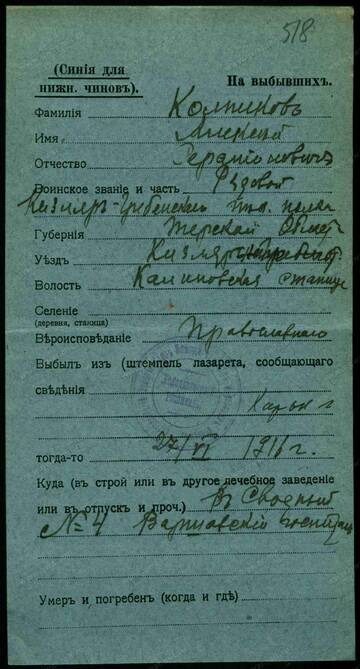 518
(Синія для
нижн. чиновъ).
На выбывшихъ.
Фамилія Колпиковъ
Имя Алексей
Отчество
Воинское званіе и часть Рядовой
Кизляр-Гребенск
Губернія Терская Област
Уѣздъ Кизляр
Волость Калиновская станица
Селеніе
(деревня, станица)
Вѣроисповѣданіе Православнаго
Выбылъ изъ (штемпель лазарета, сообщающаго
свѣдѣнія
Харьк г
тогда-то 27/VI 1916 г.
Куда (въ строй или въ другое лечебное заведеніе
или въ отпускъ и проч.) в Сводный
№ 4 Варшавскій госпиталь
Умеръ и погребенъ (когда и гдѣ)